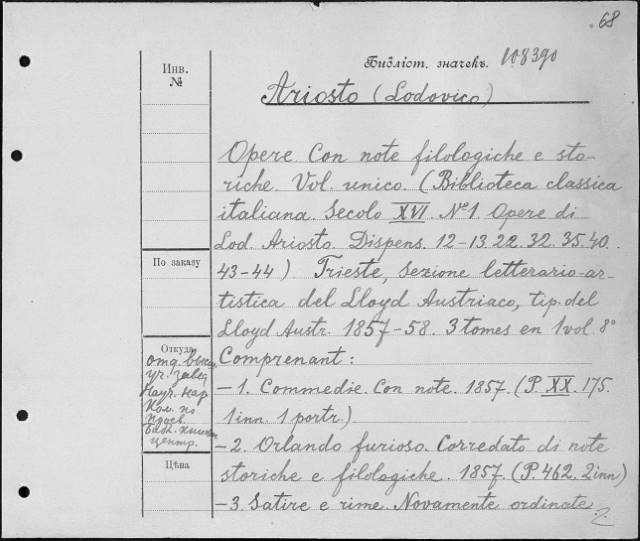 .68
Библіот. значекъ. 108390
Инв.
№
Ariosto (Lodovico)
Opere. Con note filologiche e sto-
riche. Vol. unico. (Biblioteca classica
italiana. Secolo XVI. Nº1. Opere di
Lod. Ariosto. Dispens. 12-13. 22. 32. 35. 40.
43-44) Trieste, Sezione letterario-ar-
tistica del Lloyd Austriaco, tip. del
Lloyd Austr. 1857-58. 3 tomes en 1 vol. 8°
Comprenant:
- 1. Commedie. Con note. 1857 (P. XX. 175.
1 inn. 1 portr.)
- 2. Orlando furioso. Corredato di note
storiche e filologiche. 1857. (P. 462. 2 inn)
- 3. Satire e rime. Novamente ordinate
По заказу
Откуда
отд. высш
уч. завед
Науч. нар
Ком. по
просв.
центр.
Цѣна